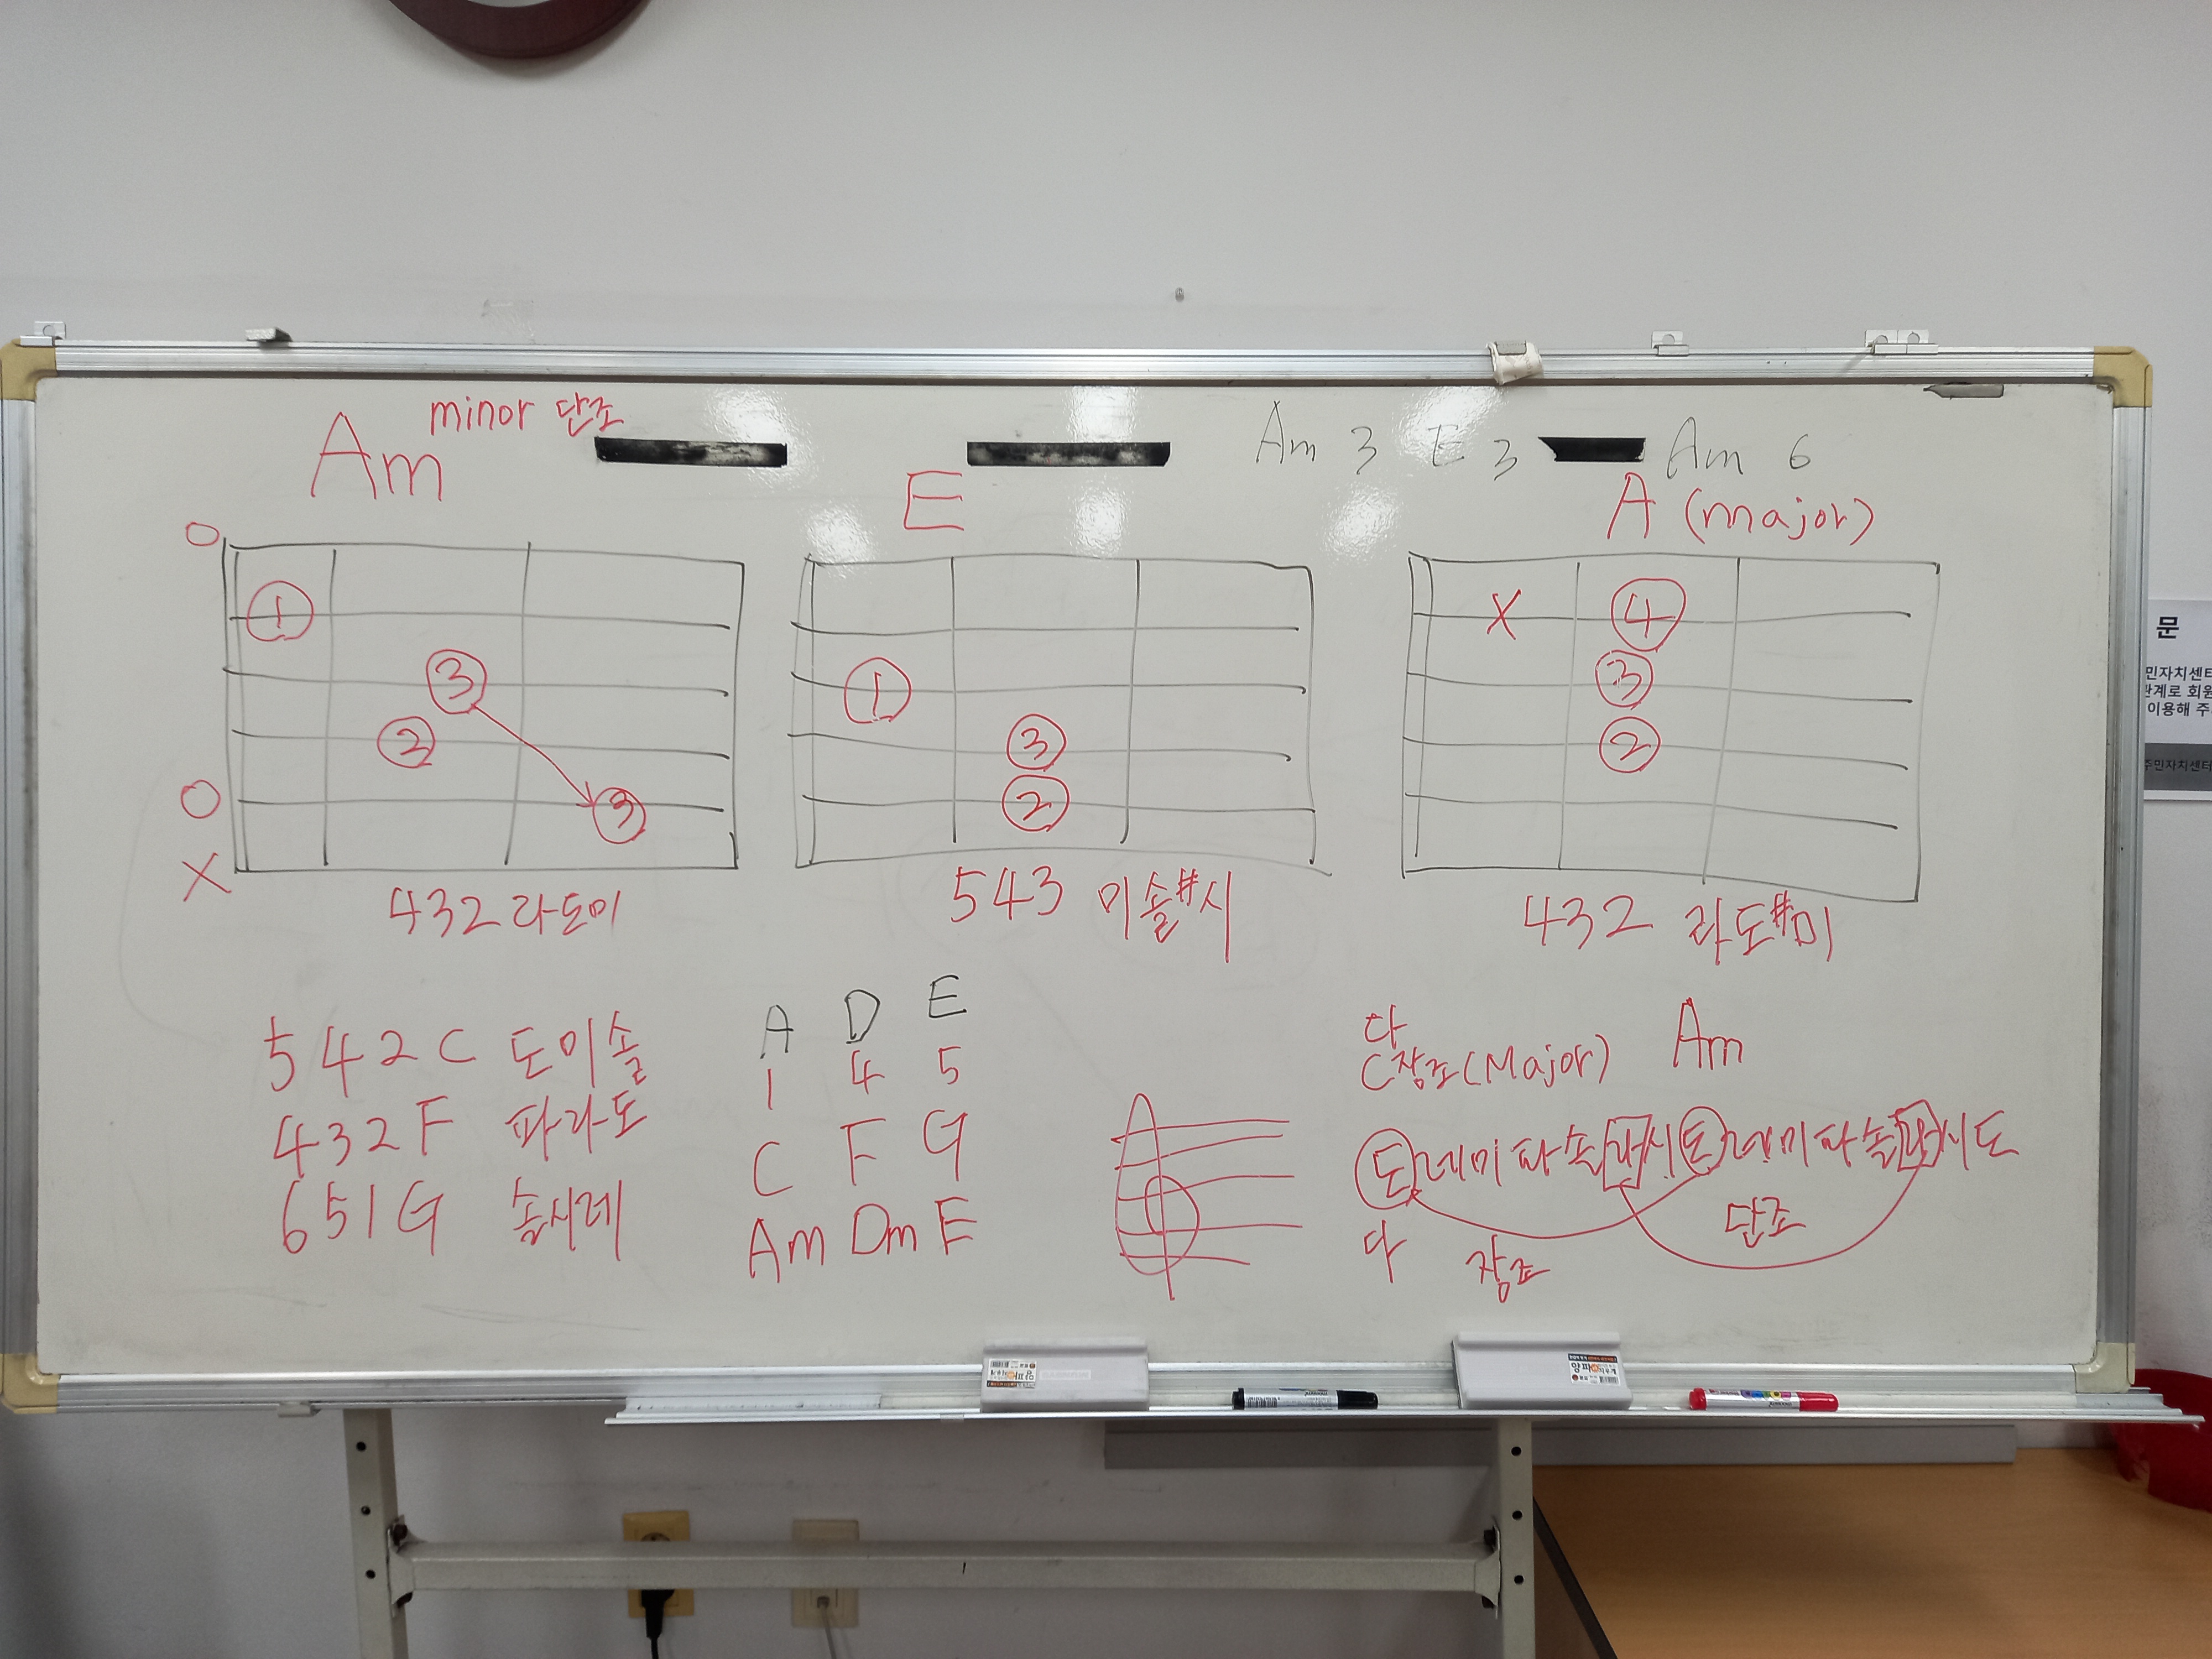 Am minor 단조
Am 3 E 3 Am 6
E
A (major)
O
1
3
2
3
O
X
1
3
2
X 4
3
2
432 라도미
543 미솔#시
432 라도#미
542 C 도미솔
432 F 파라도
651 G 솔시레
A D E
1 4 5
C F G
Am Dm E
다
C장조(Major) Am
도레미파솔라시도레미파솔라시도
다 장조
단조
문
민자치센터
관계로 회원
이용해 주
주민자치센터
양파